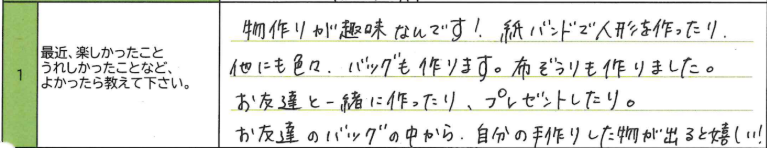 1
最近、楽しかったこと
うれしかったことなど、
よかったら教えて下さい。
物作りが趣味なんです！紙バンドで人形を作ったり、
他にも色々、バッグも作ります。布ぞうりも作りました。
お友達と一緒に作ったり、プレゼントしたり。
お友達のバッグの中から、自分の手作りした物が出ると嬉しい！